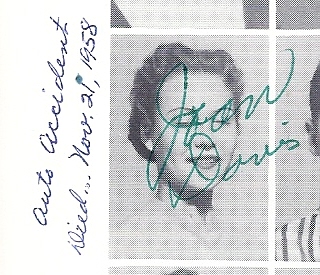 Auto Accident
Died... Nov. 21, 1958
Joan
Davis